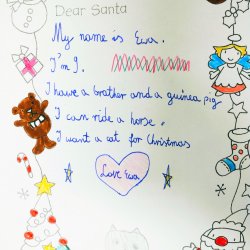 Dear Santa
My name is Ewa.
I'm 9.
I have a brother and a guinea pig
I can ride a horse.
I want a cat for Christmas
Love Ewa